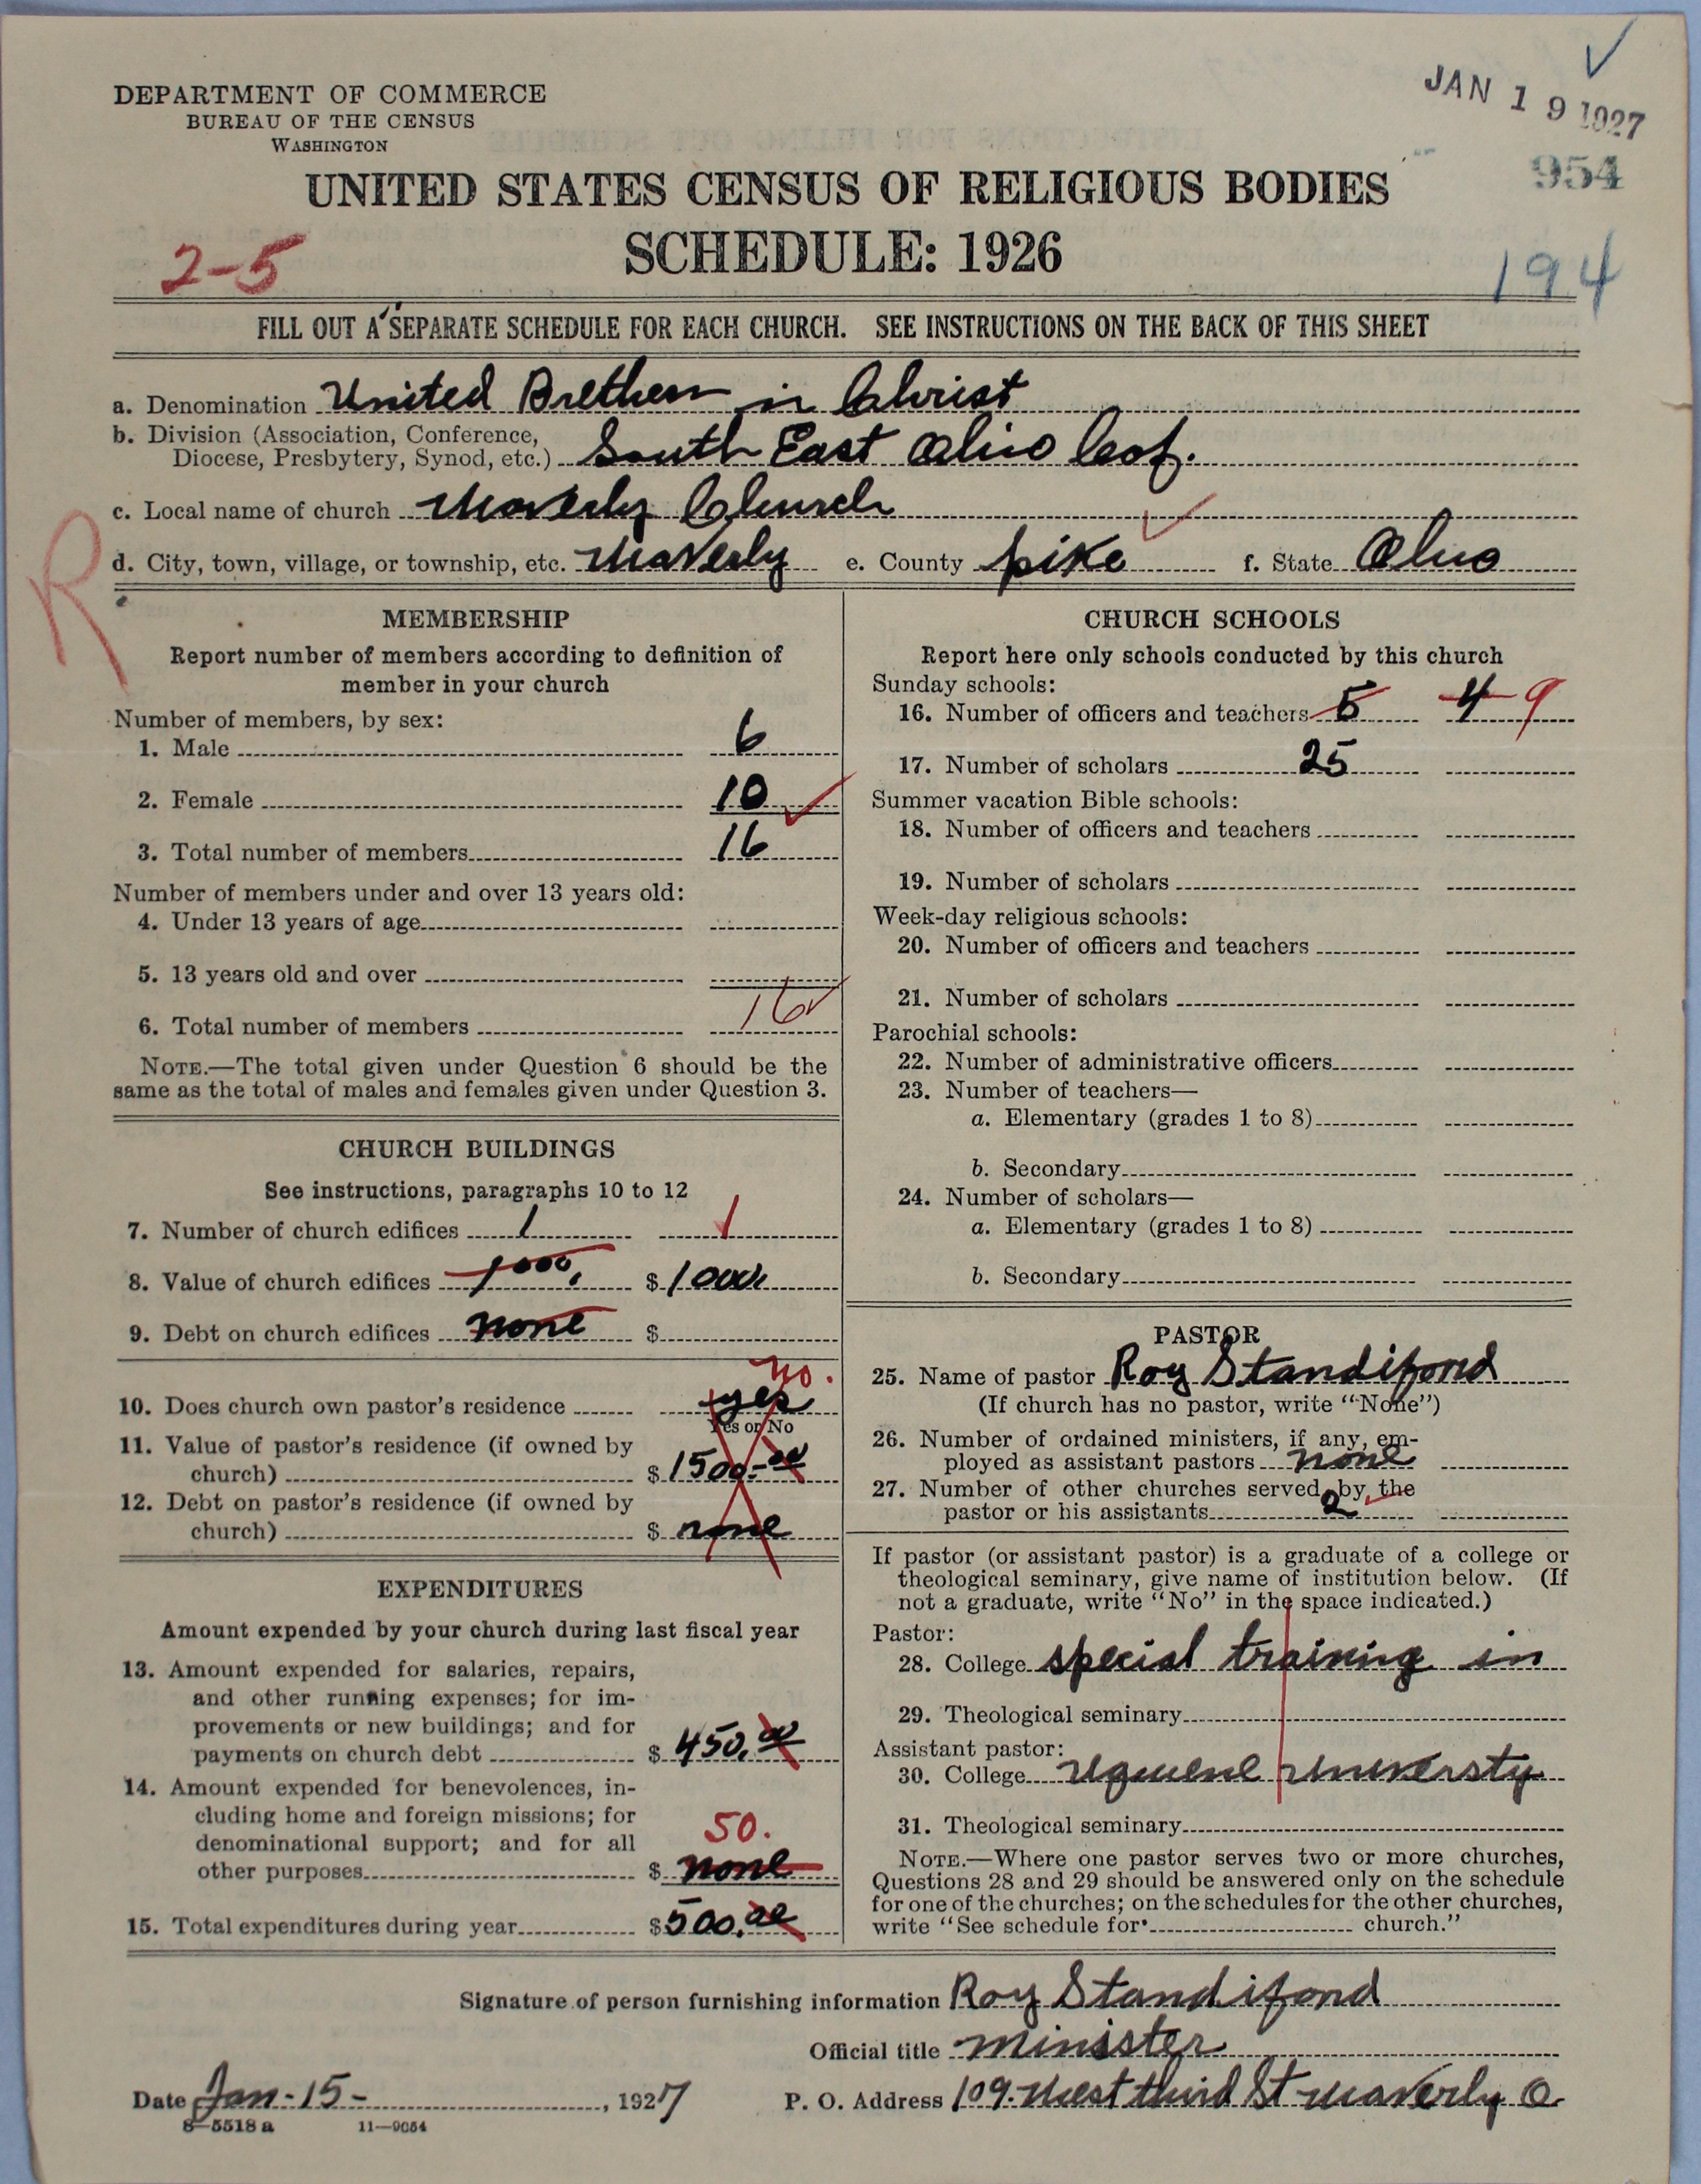 JAN 19 1927
954
DEPARTMENT OF COMMERCE
BUREAU OF THE CENSUS
WASHINGTON
UNITED STATES CENSUS OF RELIGIOUS BODIES
SCHEDULE: 1926
2-5
194
FILL OUT A SEPARATE SCHEDULE FOR EACH CHURCH. SEE INSTRUCTIONS ON THE BACK OF THIS SHEET
a. Denomination United Brethern in Christ
b. Division (Association, Conference,
Diocese, Presbytery, Synod, etc.) South East Ohio Cof.
c. Local name of church Waverly Church
d. City, town, village, or township, etc. Waverly e. County pike f. State Ohio
R
MEMBERSHIP
Report number of members according to definition of
member in your church
Number of members, by sex:
1. Male 6
2. Female 10
3. Total number of members 16
Number of members under and over 13 years old:
4. Under 13 years of age
5. 13 years old and over
6. Total number of members 16
NOTE.—The total given under Question 6 should be the
same as the total of males and females given under Question 3.
CHURCH BUILDINGS
See instructions, paragraphs 10 to 12
7. Number of church edifices 1 1
8. Value of church edifices 1000. $ 1000.
9. Debt on church edifices none $
no.
10. Does church own pastor's residence yes
Yes or No
11. Value of pastor's residence (if owned by
church) $ 1500.00
12. Debt on pastor's residence (if owned by
church) $ none
EXPENDITURES
Amount expended by your church during last fiscal year
13. Amount expended for salaries, repairs,
and other running expenses; for im-
provements or new buildings; and for
payments on church debt $ 450.00
14. Amount expended for benevolences, in-
cluding home and foreign missions; for
denominational support; and for all 50.
other purposes $ none
15. Total expenditures during year $ 500.00
CHURCH SCHOOLS
Report here only schools conducted by this church
Sunday schools:
16. Number of officers and teachers 5 4 9
17. Number of scholars 25
Summer vacation Bible schools:
18. Number of officers and teachers
19. Number of scholars
Week-day religious schools:
20. Number of officers and teachers
21. Number of scholars
Parochial schools:
22. Number of administrative officers
23. Number of teachers—
a. Elementary (grades 1 to 8)
b. Secondary
24. Number of scholars—
a. Elementary (grades 1 to 8)
b. Secondary
PASTOR
25. Name of pastor Roy Standifond
(If church has no pastor, write "None")
26. Number of ordained ministers, if any, em-
ployed as assistant pastors none
27. Number of other churches served by the
pastor or his assistants 2
If pastor (or assistant pastor) is a graduate of a college or
theological seminary, give name of institution below. (If
not a graduate, write "No" in the space indicated.)
Pastor:
28. College special training in
29. Theological seminary
Assistant pastor:
30. College Universty
31. Theological seminary
NOTE.—Where one pastor serves two or more churches,
Questions 28 and 29 should be answered only on the schedule
for one of the churches; on the schedules for the other churches,
write "See schedule for church."
Signature of person furnishing information Roy Standifond
Official title minister
Date Jan-15-, 1927 P. O. Address 109. West third St Waverly O
8-5518 a 11-9054